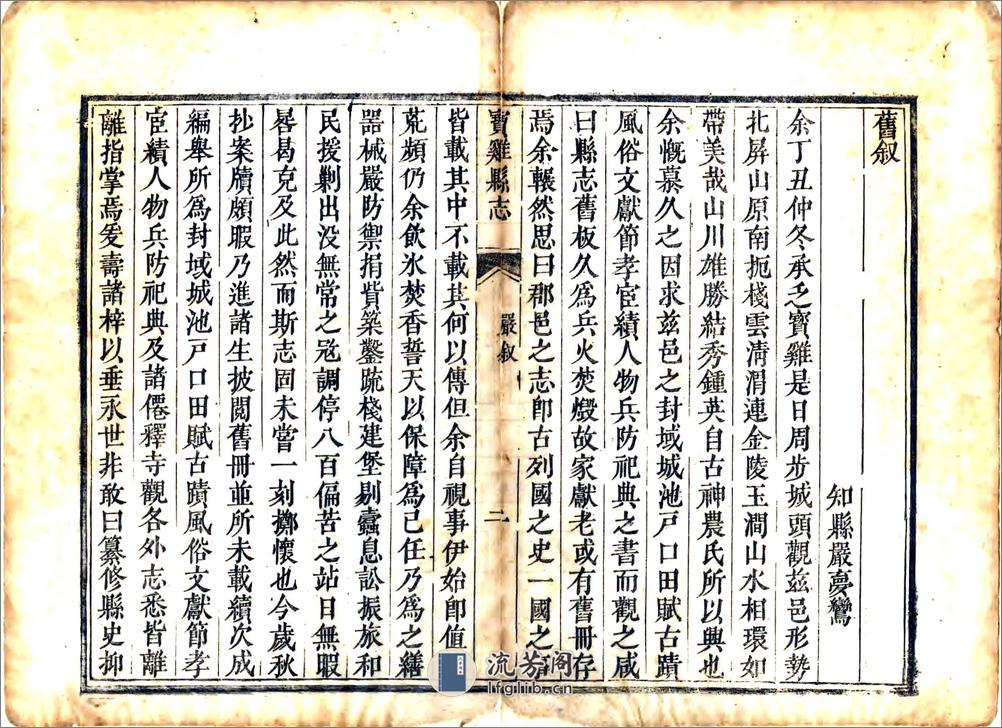 舊叙
知縣嚴夢鸞
余丁丑仲冬承乏寶雞是日周步城頭觀兹邑形勢
北屏山原南扼棧雲清渭連金陵玉澗山水相環如
帶美哉山川雄勝結秀鍾英自古神農氏所以興也
余慨慕久之因求兹邑之封域城池戸口田賦古蹟
風俗文獻節孝宦績人物兵防祀典之書而觀之咸
曰縣志舊板久為兵火焚燬故家獻老或有舊冊存
焉余冁然思曰郡邑之志卽古列國之史一國之
寶雞縣志
嚴叙
二
皆載其中不載其何以傳但余自視事伊始卽值
荒頻仍余飲氷焚香誓天以保障為己任乃為之繕
器械嚴防禦捐貲築鑿疏棧建堡剔蠹息訟振旅和
民援剿出没無常之冦調停八百偏苦之站日無暇
晷曷克及此然而斯志固未嘗一刻擲懷也今歲秋
抄案牘頗暇乃進諸生披閲舊冊並所未載續次成
編舉所為封域城池戸口田賦古蹟風俗文獻節孝
宦績人物兵防祀典及諸僊釋寺觀各外志悉皆離
離指掌焉爰壽諸梓以垂永世非敢曰纂修縣史抑
流芳阁
lfglib.cn